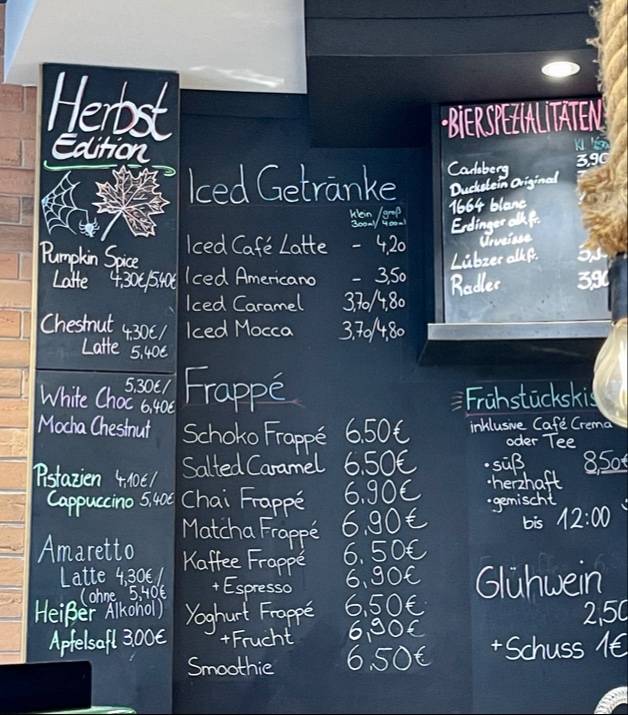 Herbst
Edition
Pumpkin Spice
Latte 4,30€/5,40€
Chestnut 4,30€/
Latte 5,40€
5,30€/
White Choc 6,40€
Mocha Chestnut
Pistazien 4,10€/
Cappuccino 5,40€
Amaretto
Latte 4,30€/
5,40€
(ohne
Alkohol)
Heißer
Apfelsaft 3,00€
Iced Getränke
klein/groß
300ml/400ml
Iced Café Latte - 4,20
Iced Americano - 3,50
Iced Caramel 3,70/4,80
Iced Mocca 3,70/4,80
Frappé
Schoko Frappé 6.50€
Salted Caramel 6.50€
Chai Frappé 6.90€
Matcha Frappé 6,90€
Kaffee Frappé 6.50€
+Espresso 6,90€
Yoghurt Frappé 6,50€
+Frucht 6,90€
Smoothie 6.50€
•BIERSPEZIALITÄTEN
Kl
Carlsberg 3,90
Duckstein Original
1664 blanc
Erdinger alkfr.
Urweisse
Lübzer alkfr.
Radler 3,90
Frühstückskis
inklusive Café Crema
oder Tee
•süß 8,50€
•herzhaft
•gemischt
bis 12:00
Glühwein
2,50
+Schuss 1€